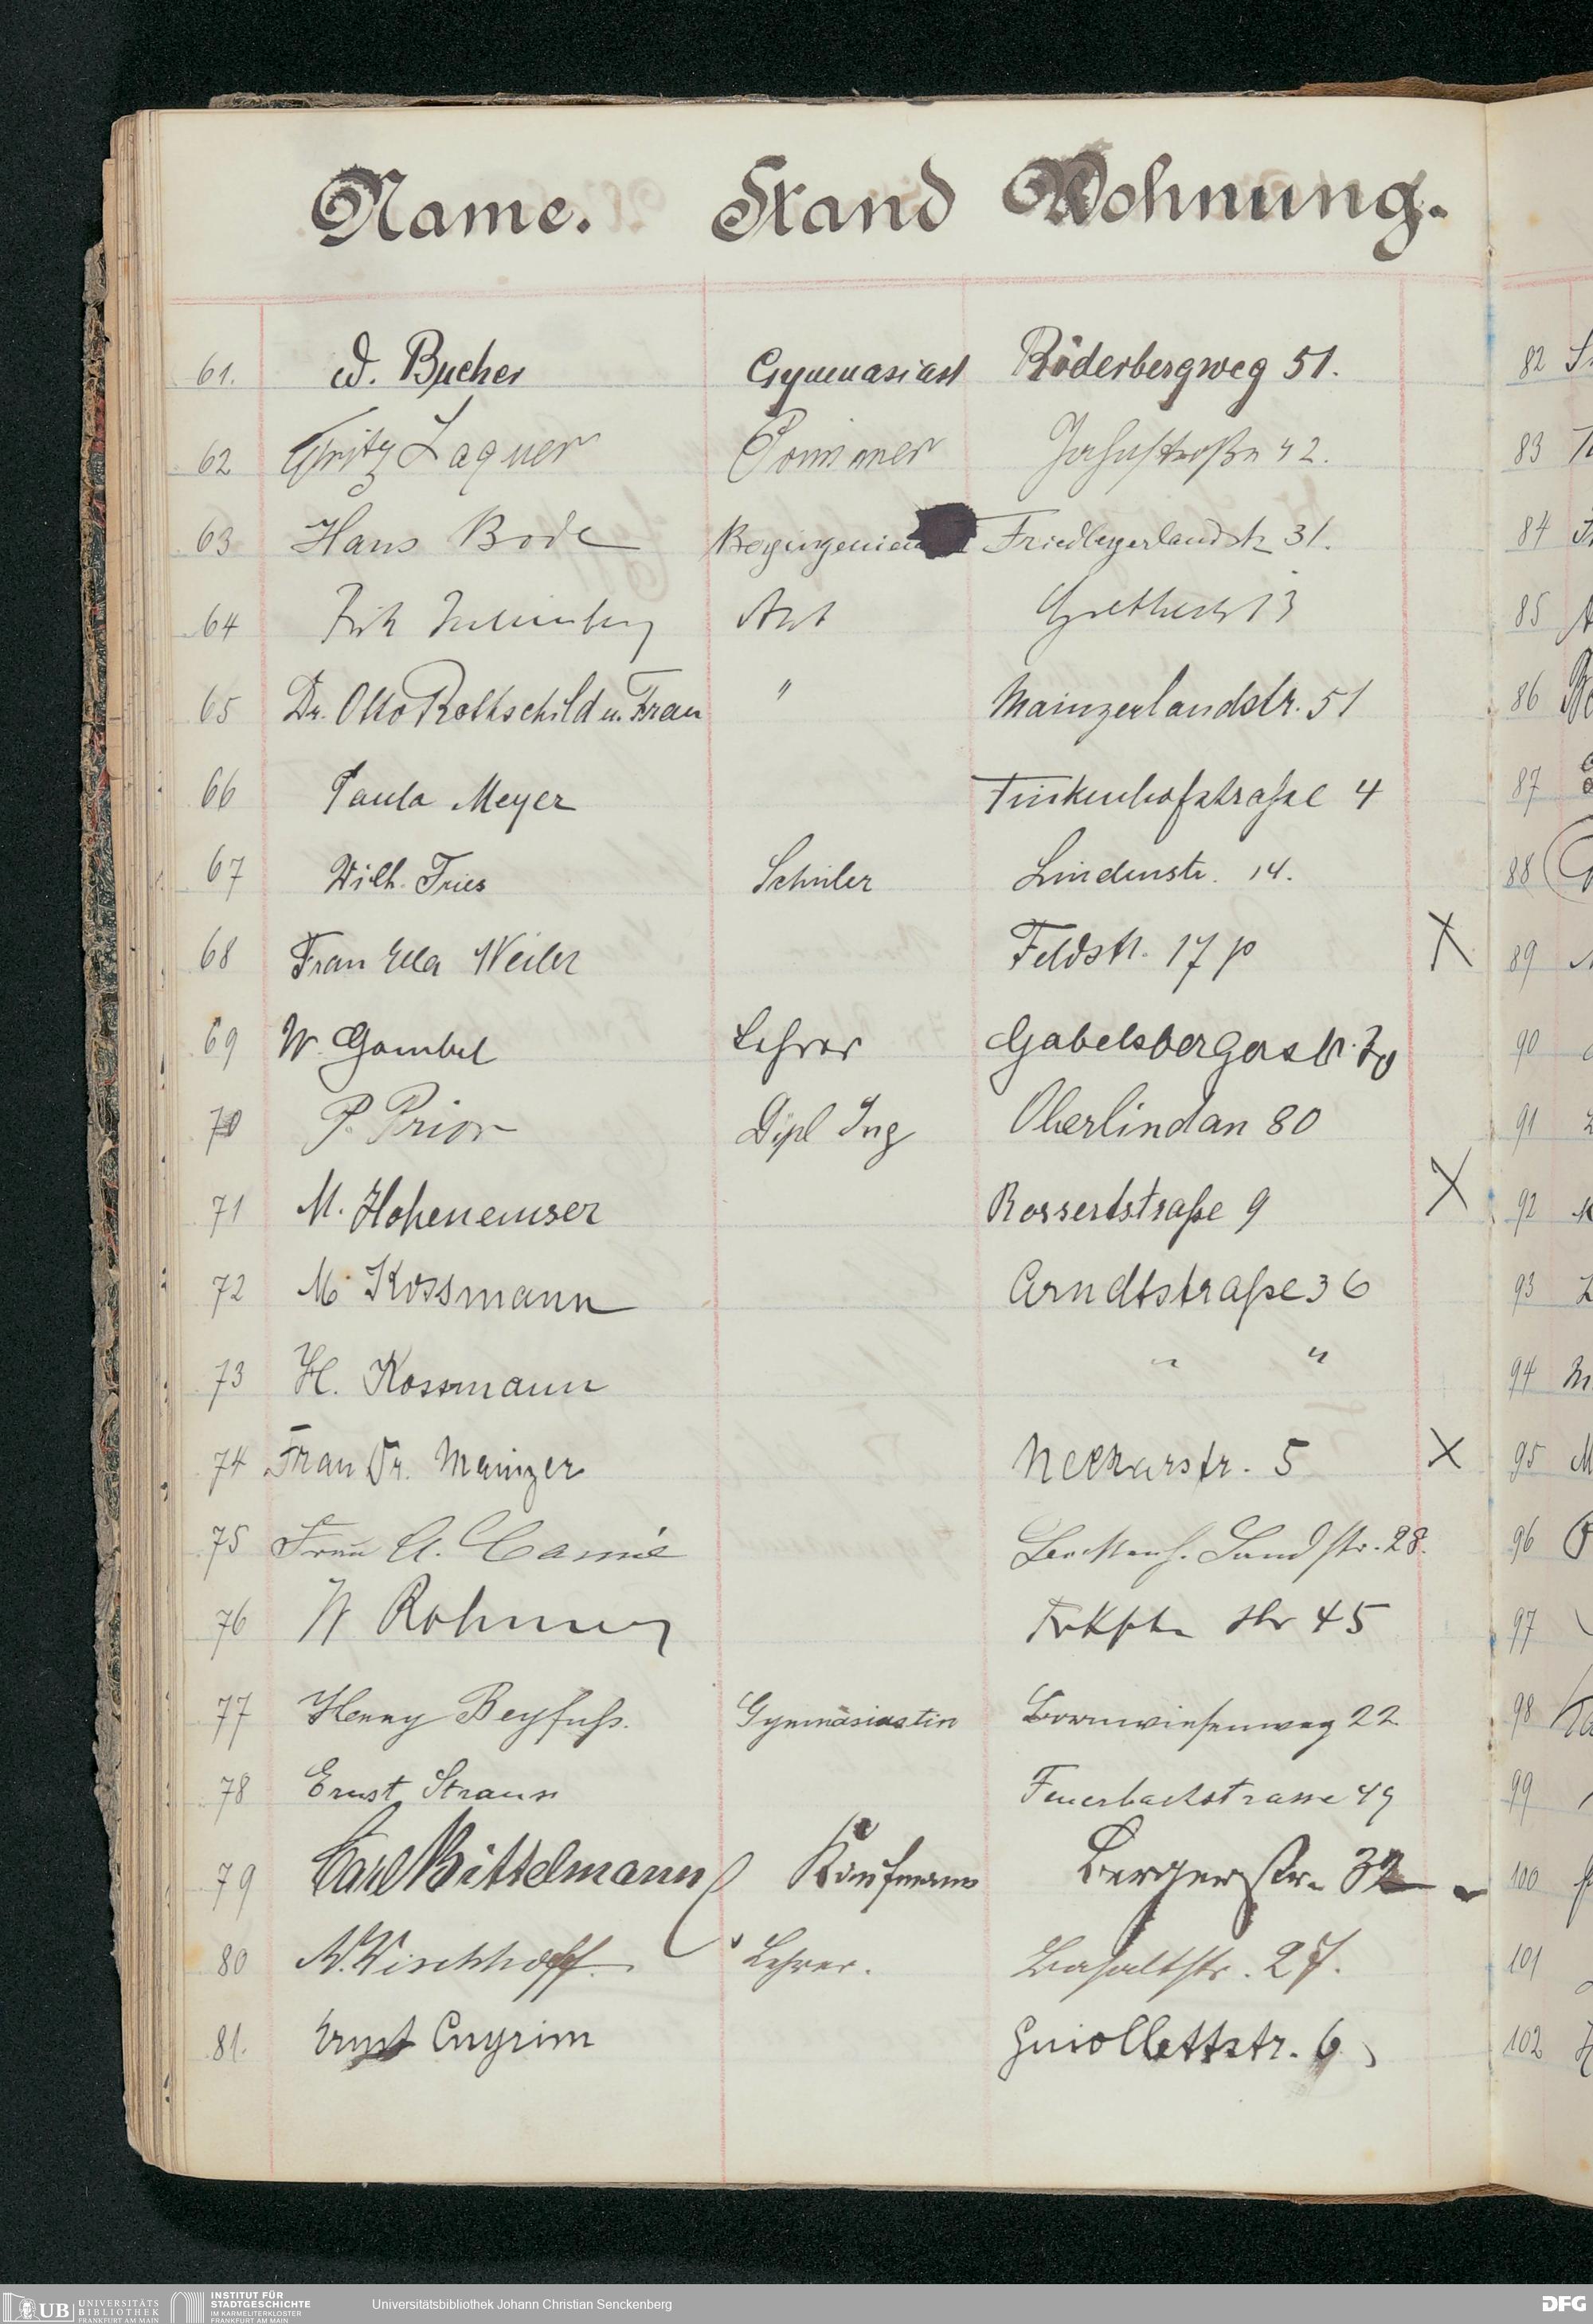 Name. Stand Wohnung.
61. W. Bucher Gymnasiast Röderbergweg 51.
62 Fritz Laquer Primaner Jahnstraße 42.
63 Hans Bode Friedbergerlandstr 31.
64 Arzt Goethestr 13
65 Dr. Otto Rothschild u. Frau " Mainzerlandstr. 51
66 Paula Meyer Finkenhofstraße 4
67 Wilh. Fries Schüler Lindenstr. 14.
68 Frau Ella Weiler Feldstr. 17 p X
69 W. Gombel Lehrer Gabelsbergerstr.
70 P. Prior Dipl Ing Oberlindau 80
71 M. Hohenemser Rossertstraße 9 X
72 M Kossmann Arndtstraße 36
73 H. Kossmann " "
74 Frau Dr. Mainzer Neckarstr. 5 X
75 Frau A. Landstr. 28.
76 W Rohmer str 45
77 Henny Beyfuß. Gymnasiastin Bornwiesenweg 22
78 Ernst Strauss Feuerbachstrasse 49
79 Carl Bittelmann Kaufmann Bergerstr. 32
80 W. Kirchhoff. Lehrer. Basaltstr. 27.
81. Ernst Cnyrim Guiollettstr. 6
82
83
84
85
86
87
88
89
90
91
92
93
94
95
96
97
98
99
100
101
102
UB UNIVERSITÄTS
BIBLIOTHEK
FRANKFURT AM MAIN
INSTITUT FÜR
STADTGESCHICHTE
IM KARMELITERKLOSTER
FRANKFURT AM MAIN
Universitätsbibliothek Johann Christian Senckenberg
DFG